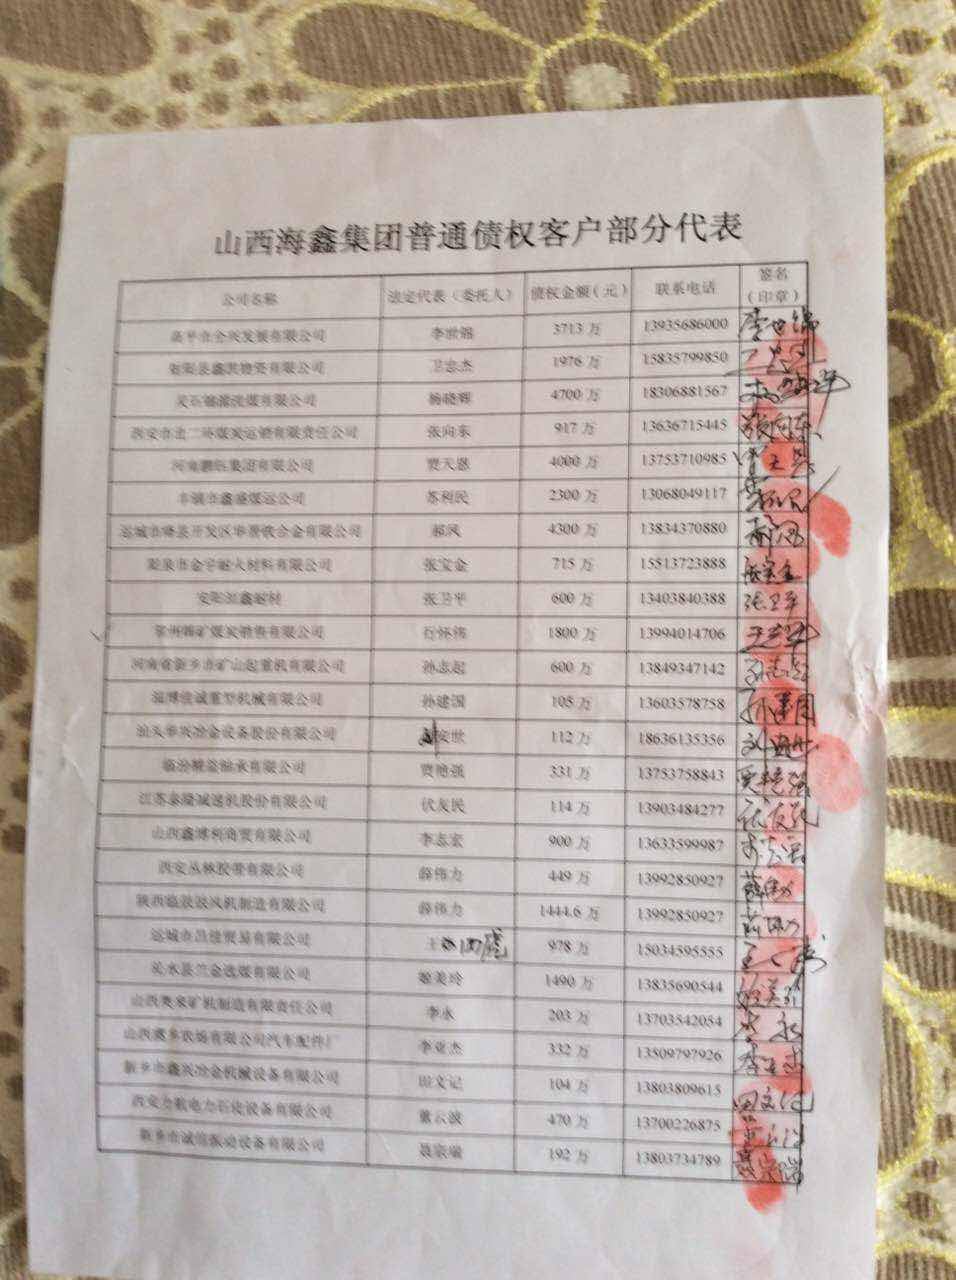 山西海鑫集团普通债权客户部分代表
公司名称 法定代表（委托人） 债权金额（元） 联系电话 签名（印章）
高平市全兴发展有限公司 李世锦 3713 万 13935686000
安阳县鑫淇物资有限公司 卫忠杰 1976 万 15835799850
灵石 洗煤有限公司 杨晓辉 4700 万 18306881567
西安市北二环煤炭运销有限责任公司 张向东 917 万 13636715445 张向东
河南鹏钰集团有限公司 贾天恩 4000 万 13753710985
丰镇市鑫盛煤运公司 苏利民 2300 万 13068049117
运城市绛县开发区华晋铁合金有限公司 郝风 4300 万 13834370880
阳泉市金宇耐火材料有限公司 张宝金 715 万 15513723888 张宝金
安阳 鑫耐材 张卫平 600 万 13403840388 张卫平
常州 矿煤炭销售有限公司 石怀伟 1800 万 13994014706
河南省新乡市矿山起重机有限公司 孙志超 600 万 13849347142 孙志超
淄博佳诚重型机械有限公司 孙建国 105 万 13603578758 孙建国
汕头华兴冶金设备股份有限公司 刘安世 112 万 18636135356 刘安世
临汾 轴承有限公司 贾艳强 331 万 13753758843 贾艳强
江苏泰隆减速机股份有限公司 伏友民 114 万 13903484277
山西鑫博利商贸有限公司 李志宏 900 万 13633599987
西安丛林胶带有限公司 薛伟力 449 万 13992850927 薛伟力
陕西临鼓鼓风机制造有限公司 薛伟力 1444.6 万 13992850927
运城市昌佳贸易有限公司 王 虎 978 万 15034595555
沁水县兰金选煤有限公司 姬美玲 1490 万 13835690544 姬美玲
山西奥来矿机制造有限责任公司 李永 203 万 13703542054 李永
山西 乡农场有限公司汽车配件厂 李亚杰 332 万 13509797926
新乡市鑫兴冶金机械设备有限公司 田文记 104 万 13803809615 田文记
西安力航电力石化设备有限公司 董云波 470 万 13700226875
新乡市诚信振动设备有限公司 聂宗瑞 192 万 13803734789